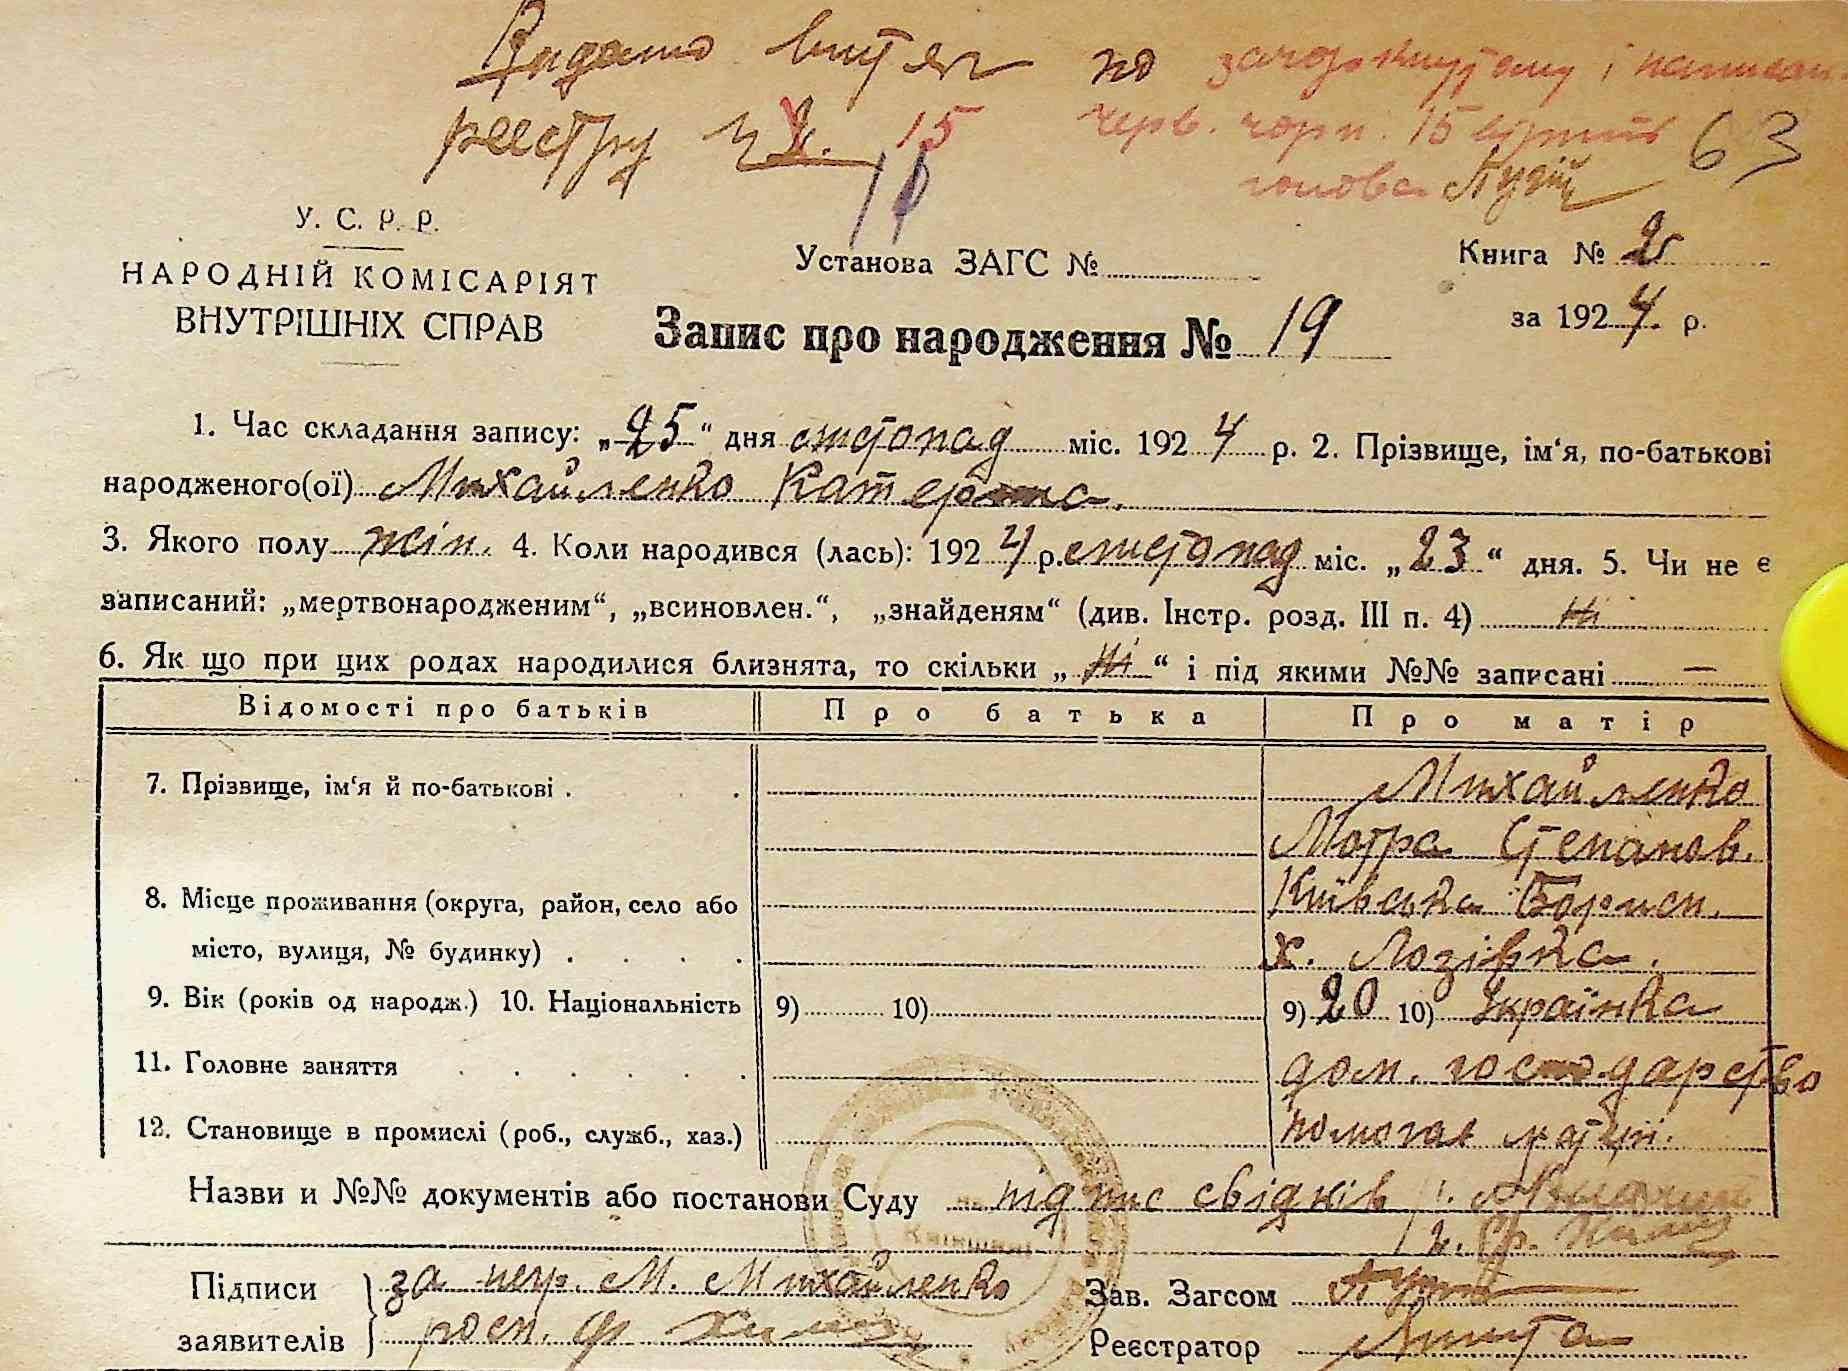 Видано витяг по зачеркнутому і написан.
реєстру 15 черв. чорн. 15 63
голова
У. С. Р. Р.
НАРОДНІЙ КОМІСАРІЯТ
ВНУТРІШНІХ СПРАВ
Установа ЗАГС №
Книга № 2
за 1924 р.
Запис про народження № 19
1. Час складання запису: „25“ дня листопад міс. 1924 р. 2. Прізвище, ім‘я, по-батькові
народженого(ої) Михайленко Катерина.
3. Якого полу жін. 4. Коли народився (лась): 1924 р. листопад міс. „23“ дня. 5. Чи не є
записаний: „мертвонародженим“, „всиновлен.“, „знайденям“ (див. Інстр. розд. III п. 4) Ні
6. Як що при цих родах народилися близнята, то скільки „Ні“ і під якими №№ записані —
Відомості про батьків Про батька Про матір
7. Прізвище, ім‘я й по-батькові . . . Михайленко
Мотра Степанов.
8. Місце проживання (округа, район, село або Київська Борисп.
місто, вулиця, № будинку) . . . . х. Лозівка.
9. Вік (років од народж.) 10. Національність 9) 10) 9) 20 10) Українка
11. Головне заняття . . . . . дом. господарство
12. Становище в промислі (роб., служб., хаз.) помогає матери.
Назви и №№ документів або постанови Суду підпис свідків 1.
2.
Підписи заявителів } за негр. М. Михайленко
росп. Ф
Зав. Загсом
Реєстратор